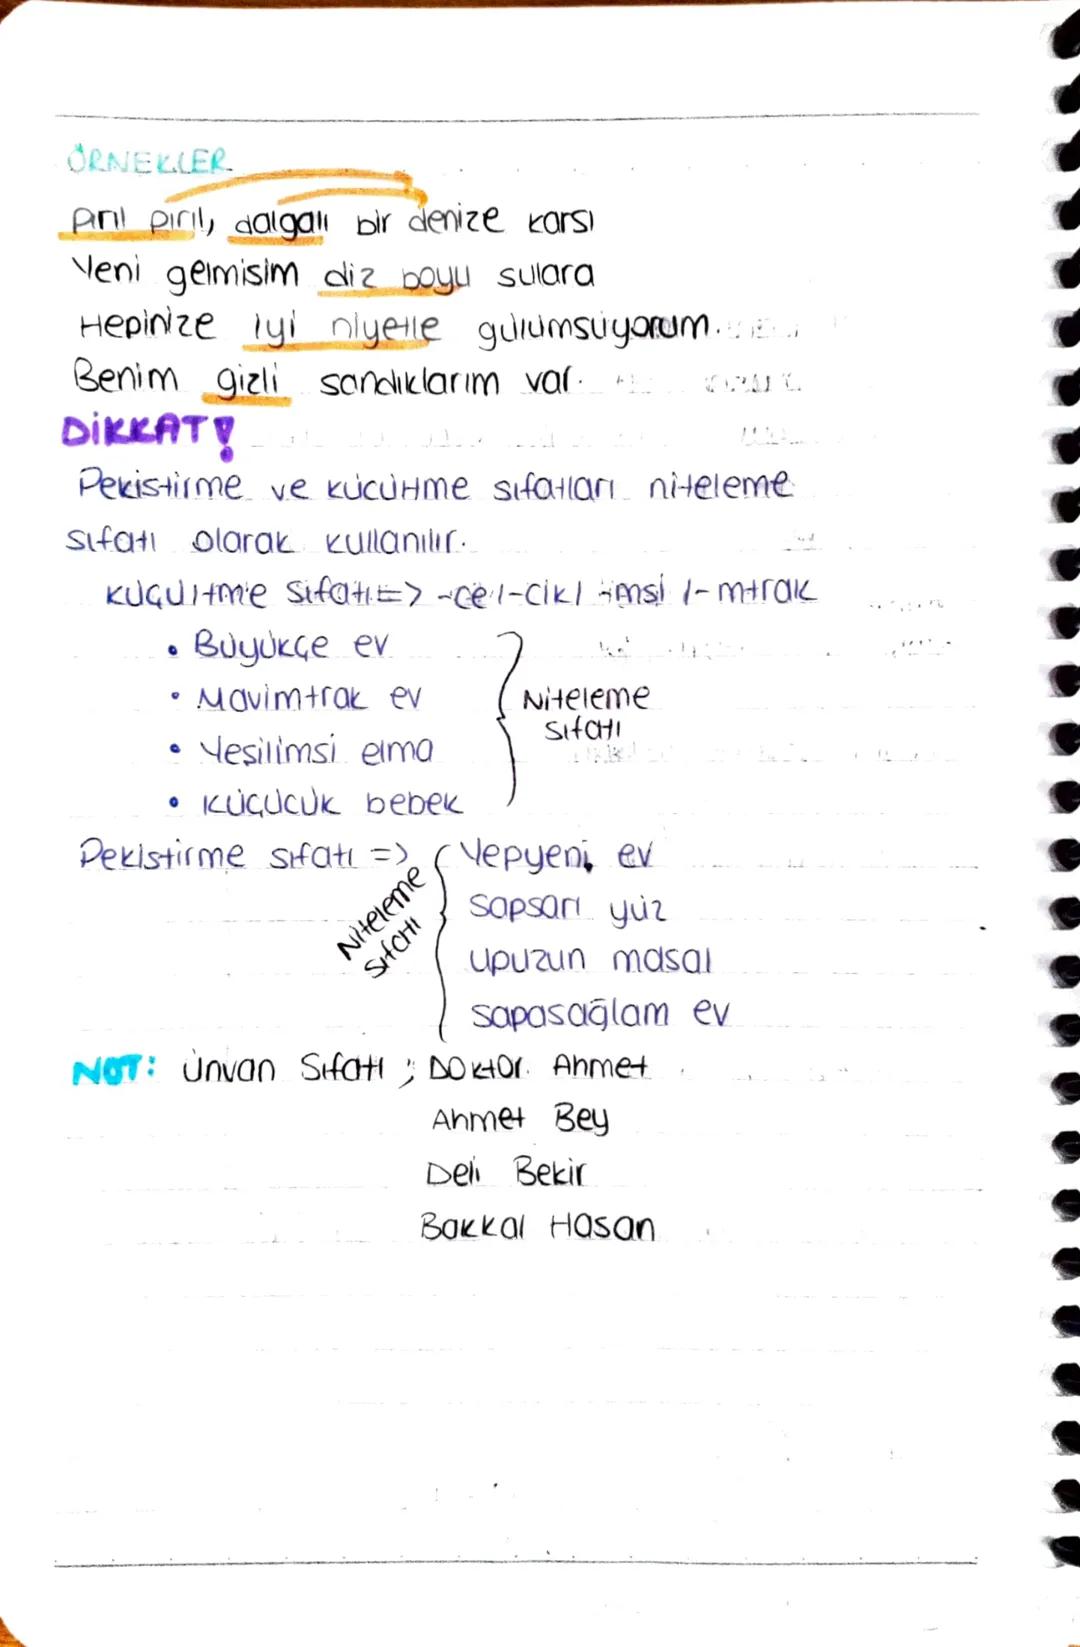 ÖRNEKLER
Pırıl pırıl, dalgalı bir denize karsı
Yeni gelmisim diz boyu sulara
Hepinize iyi niyetle gülümsüyorum.
Benim gizli sandıklarım var.
DİKKAT!
Pekistirme ve kücültme sıfatları niteleme
sıfatı olarak kullanılır.
Küçültme Sıfatı => -ce/-cik/-imsi/-mtrak
• Büyükçe ev
• Mavimtrak ev
• Yesilimsi elma
• Küçücük bebek
Niteleme
sıfatı
Pekistirme sıfatı => Yepyeni ev
sapsarı yüz
upuzun masal
sapasağlam ev
Niteleme
sıfatı
NOT: Ünvan Sıfatı ; Doktor Ahmet
Ahmet Bey
Deli Bekir
Bakkal Hasan